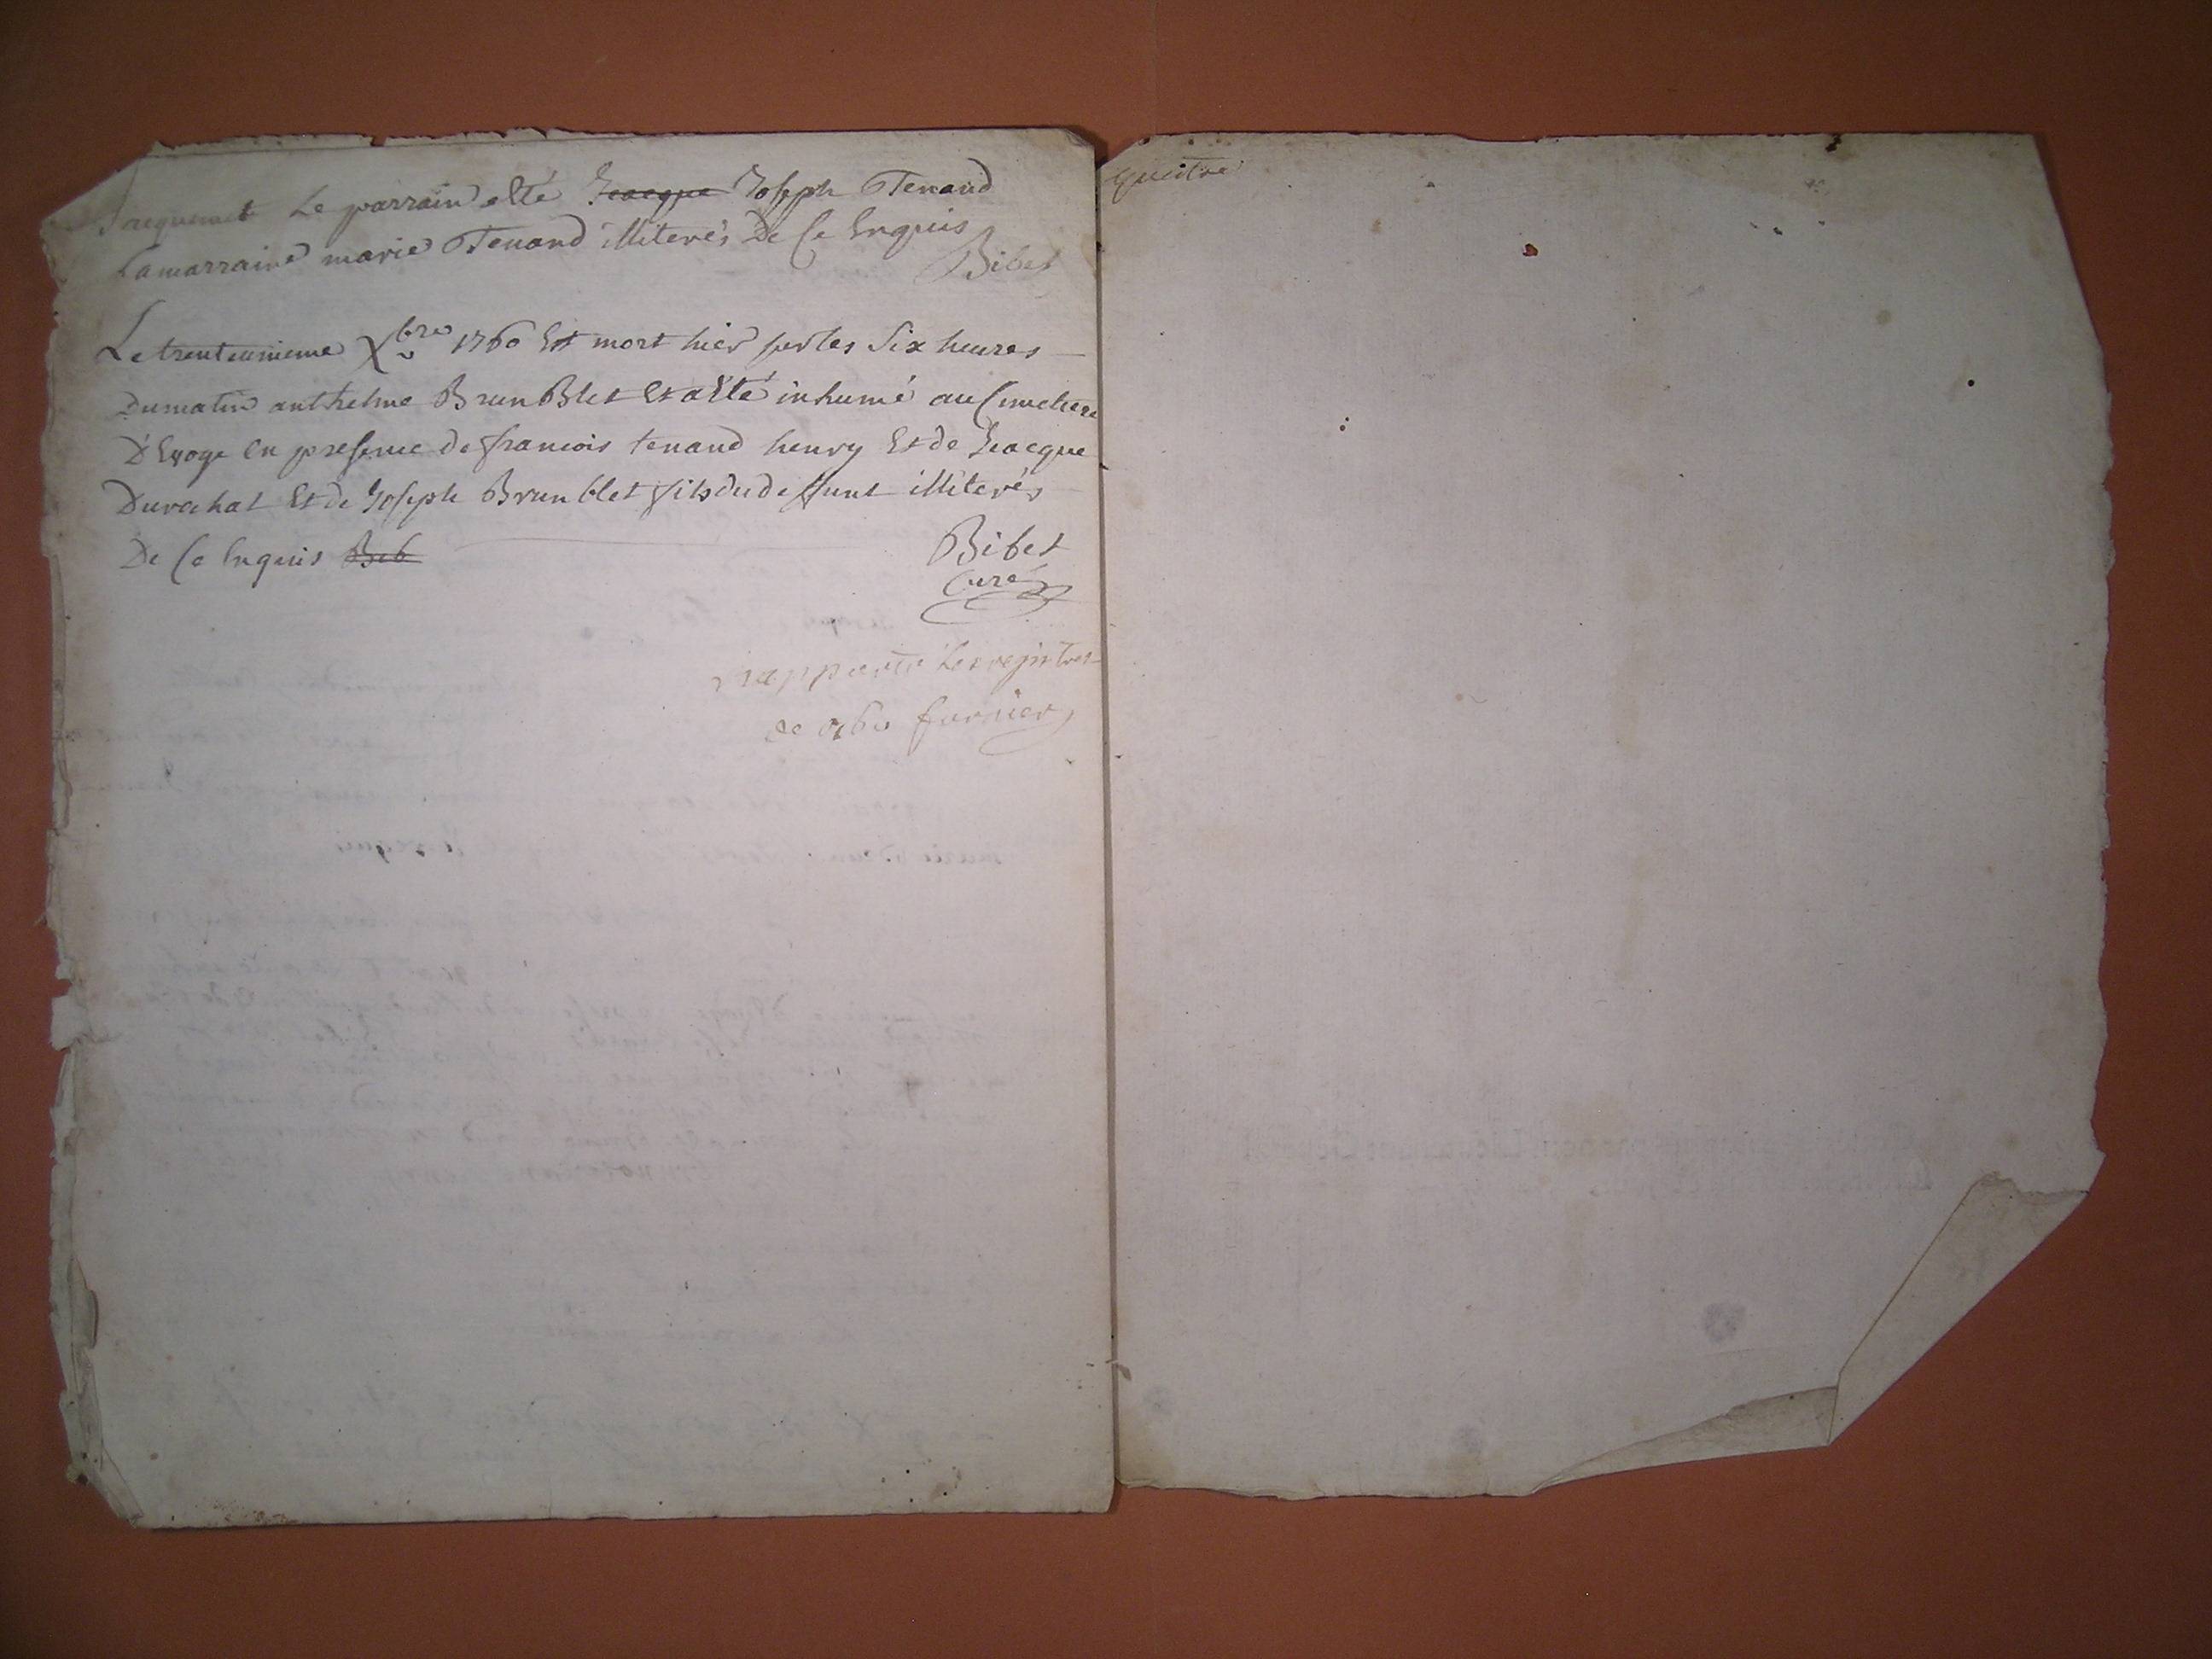 Jacquemet Le parrain a Eté Jeacque Joseph Tenand
La marraine marie Tenand illiterés De Ce Enquis
Bibet
Le trenteunieme Xbre 1760 Est mort hier sur les Six heures
Du matin anthelme Brun Blet Et a Eté inhumé au Cimetiere
D'Evoge En presence de francois tenand henry Et de Jeacque
Durochat Et de Joseph Brun blet fils du deffunt illiterés
De Ce Enquis Beb
Bibet
Curé
rapporté les registres
de